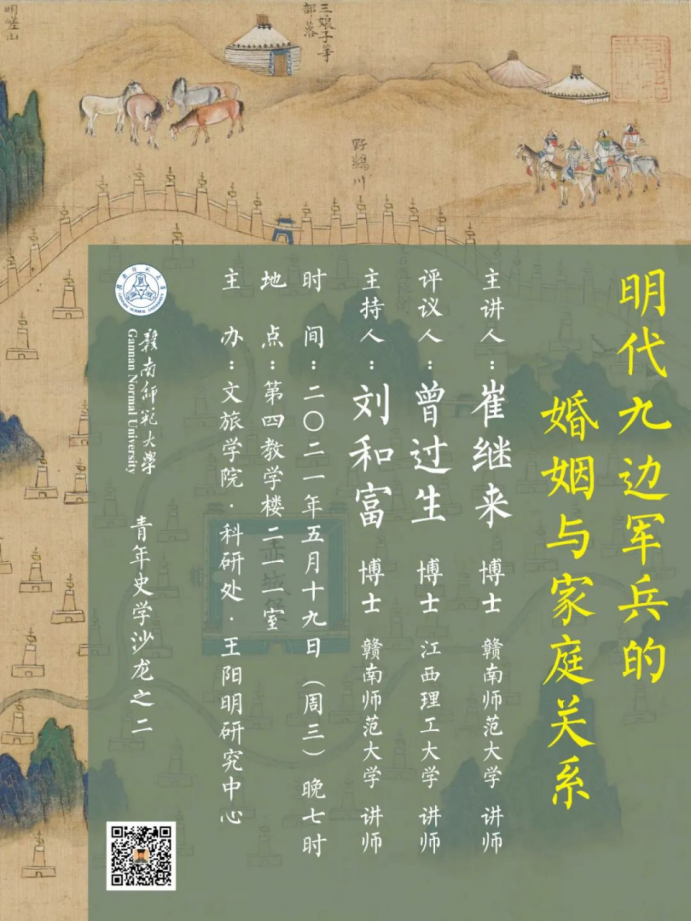 明代九边军兵的
婚姻与家庭关系
主讲人：崔继来 博士 赣南师范大学 讲师
评议人：曾过生 博士 江西理工大学 讲师
主持人：刘和富 博士 赣南师范大学 讲师
时间：二〇二一年五月十九日（周三）晚七时
地点：第四教学楼二一一室
主办：文旅学院·科研处·王阳明研究中心
赣南师范大学
Gannan Normal University
青年史学沙龙之二
三娘子等
部落
野鵲川